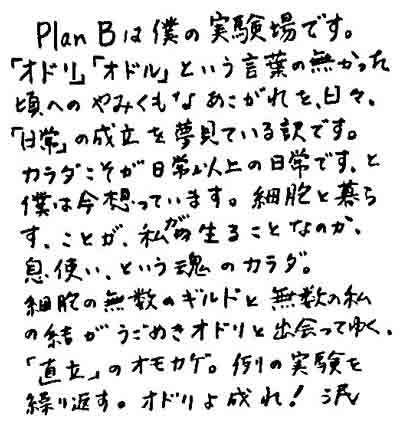 Plan Bは僕の実験場です。
「オドリ」「オドル」という言葉の無かった
頃へのやみくもなあこがれを、日々、
「日常」の成立を夢見ている訳です。
カラダこそが日常以上の日常です、と
僕は今想っています。細胞と暮ら
す、ことが、私が生ることなのか、
息使い、という魂のカラダ。
細胞の無数のギルドと無数の私
の結がうごめきオドリと出会ってゆく、
「直立」のオモカゲ。例の実験を
繰り返す。オドリよ成れ! 泯